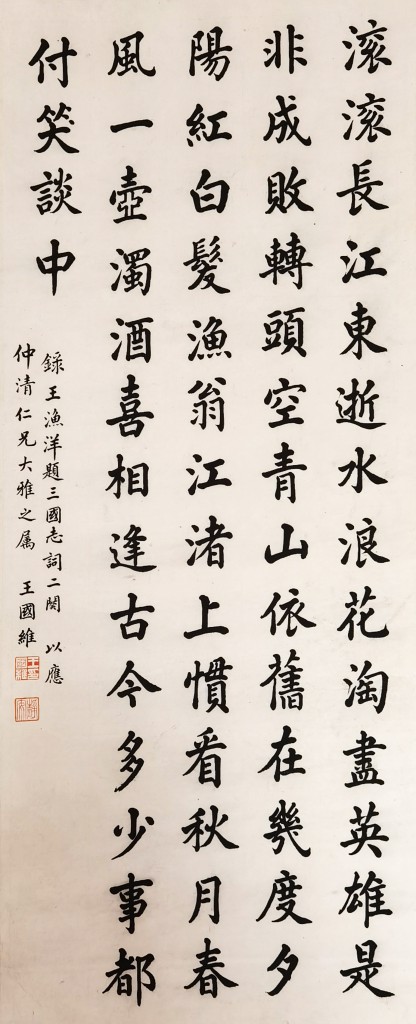 滚滚長江東逝水浪花淘盡英雄是
非成敗轉頭空青山依舊在幾度夕
陽紅白髮漁翁江渚上慣看秋月春
風一壺濁酒喜相逢古今多少事都
付笑談中
錄王漁洋題三國志詞二闋 以應
仲清仁兄大雅之屬 王國維